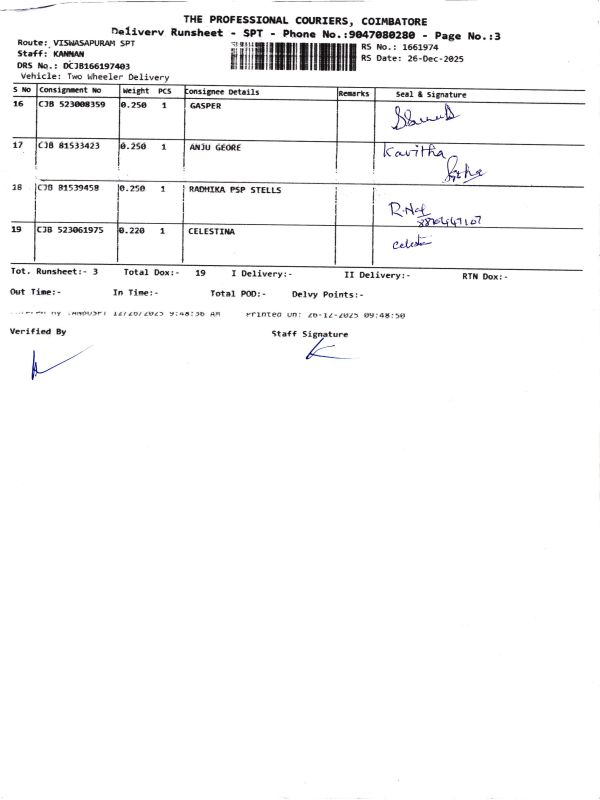 THE PROFESSIONAL COURIERS, COIMBATORE
Delivery Runsheet - SPT - Phone No.:9047080280 - Page No.:3
Route: VISWASAPURAM SPT
RS No.: 1661974
Staff: KANNAN
RS Date: 26-Dec-2025
DRS No.: DCJB166197403
Vehicle: Two Wheeler Delivery
S No Consignment No Weight PCS Consignee Details Remarks Seal & Signature
16 CJB 523008359 0.250 1 GASPER
17 CJB 81533423 0.250 1 ANJU GEORE Kavitha
18 CJB 81539458 0.250 1 RADHIKA PSP STELLS
19 CJB 523061975 0.220 1 CELESTINA
Tot. Runsheet:- 3 Total Dox:- 19 I Delivery:- II Delivery:- RTN Dox:-
Out Time:- In Time:- Total POD:- Delvy Points:-
12/26/2025 9:48:36 AM Printed On: 26-12-2025 09:48:50
Verified By Staff Signature